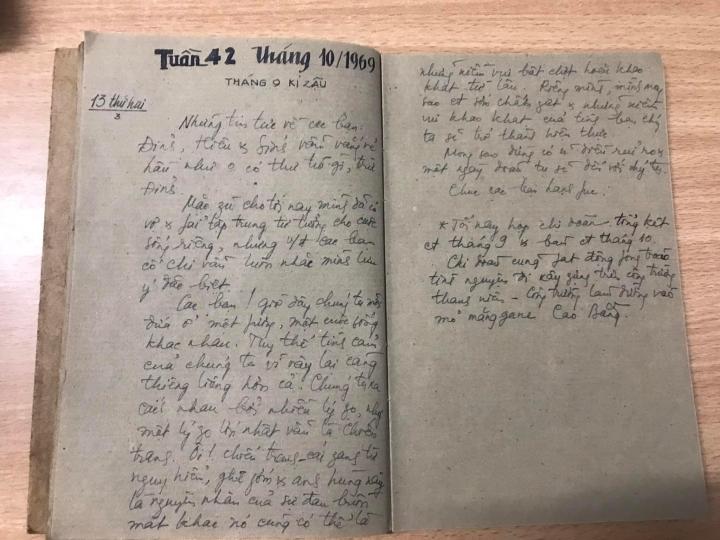 Tuần 42 tháng 10/1969
THÁNG 9 KỈ ZẬU
13 thứ hai
3
Những tin tức về các bạn
Đins, Hiếu x Sins vẫn vắng vẻ
hầu như 0 có thư từ gì, trừ
Đins.
Mặc zù cho tới nay mình đã có
vợ x fải tập trung tư tưởng cho cuộc
sống riêng, nhưng v/đ các bạn
cố chi vẫn luôn nhắc mình lưu
ý đặc biệt.
Các bạn! giờ đây chúng ta mỗi
đứa ở một fương, một cuộc sống
khác nhau. Tuy thế tình cảm
của chúng ta vì vậy lại càng
thiêng liêng hơn cả. Chúng ta xa
cách nhau bởi nhiều lý zo, như
một lý zo lớn nhất vẫn là chiến
trang. Ôi! chiến trang - cái zang từ
nguy hiểm, ghê gớm x ans hùng này
là nguyên nhân của sự đau buồn
mất khác nó cũng có thể là
những niềm vui bất chợt hoặc khao
khát từ lâu. Riêng mình, mình mong
sao ct sớm chấm zứt x những niềm
vui khao khát của từng bạn chúng
ta sẽ trở thành hiện thực.
Mong sao đừng có 1 điều rủi ro x
một ngày đoàn tụ sẽ đến với chúng ta.
Chúc các bạn hạns fúc.
* Tối nay họp chi đoàn tổng kết
ct tháng 9 x bàn ct tháng 10.
Chi đoàn cũng fát động fong trào
tình nguyện đi xây zựng trên công trường
thanh niên - Công trường làm đường vào
mỏ măng gane Cao Bằng.